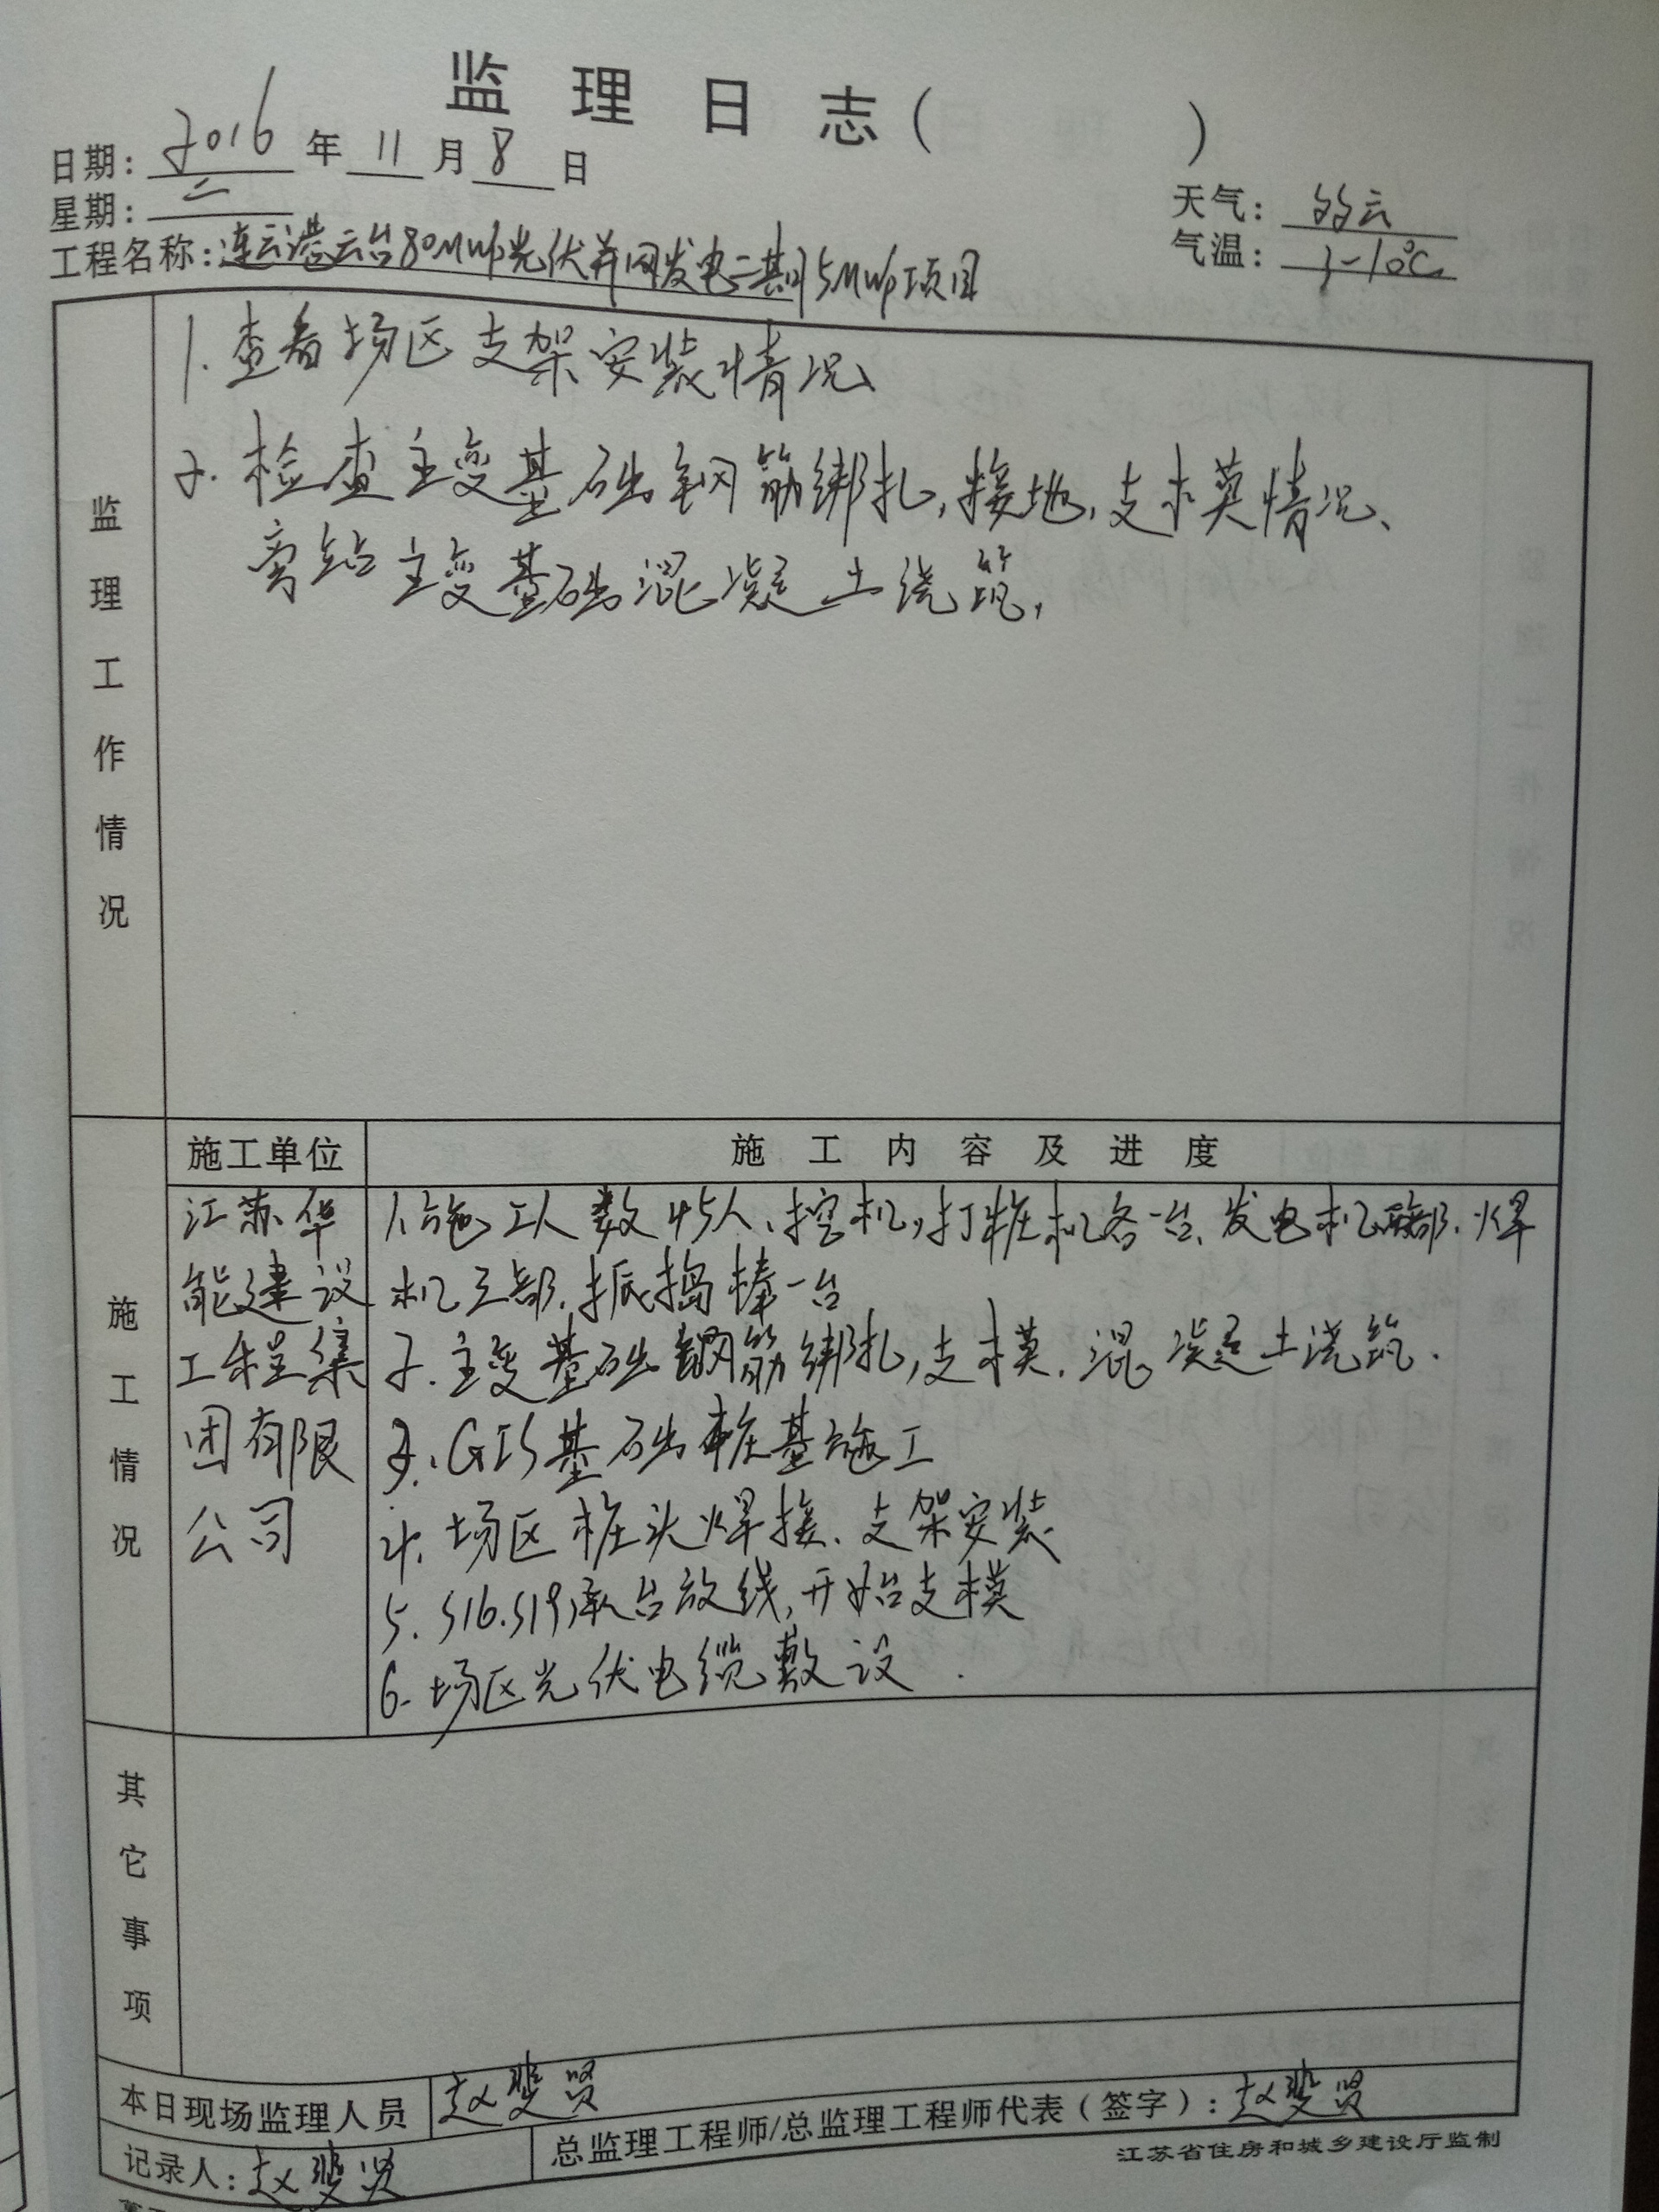 监理日志（ ）
日期：2016年11月8日
星期：二
天气：多云
工程名称：连云港云台80MWp光伏并网发电二期15MWp项目
气温：3-10℃
监理工作情况
1. 查看场区支架安装情况、
2. 检查主变基础钢筋绑扎，接地，支模情况、
旁站主变基础混凝土浇筑，
施工情况
施工单位 施工内容及进度
江苏华
能建设
工程集
团有限
公司
1.施工人数45人、挖机，打桩机各一台、发电机 部.焊
机三部.振捣棒一台
2.主变基础钢筋绑扎，支模.混凝土浇筑.
3.GIS基础桩基施工
4.场区桩头焊接、支架安装
5.S16.S19承台放线，开始支模
6.场区光伏电缆敷设.
其它事项
本日现场监理人员 赵斐贤
总监理工程师/总监理工程师代表（签字）：赵斐贤
记录人：赵斐贤
江苏省住房和城乡建设厅监制